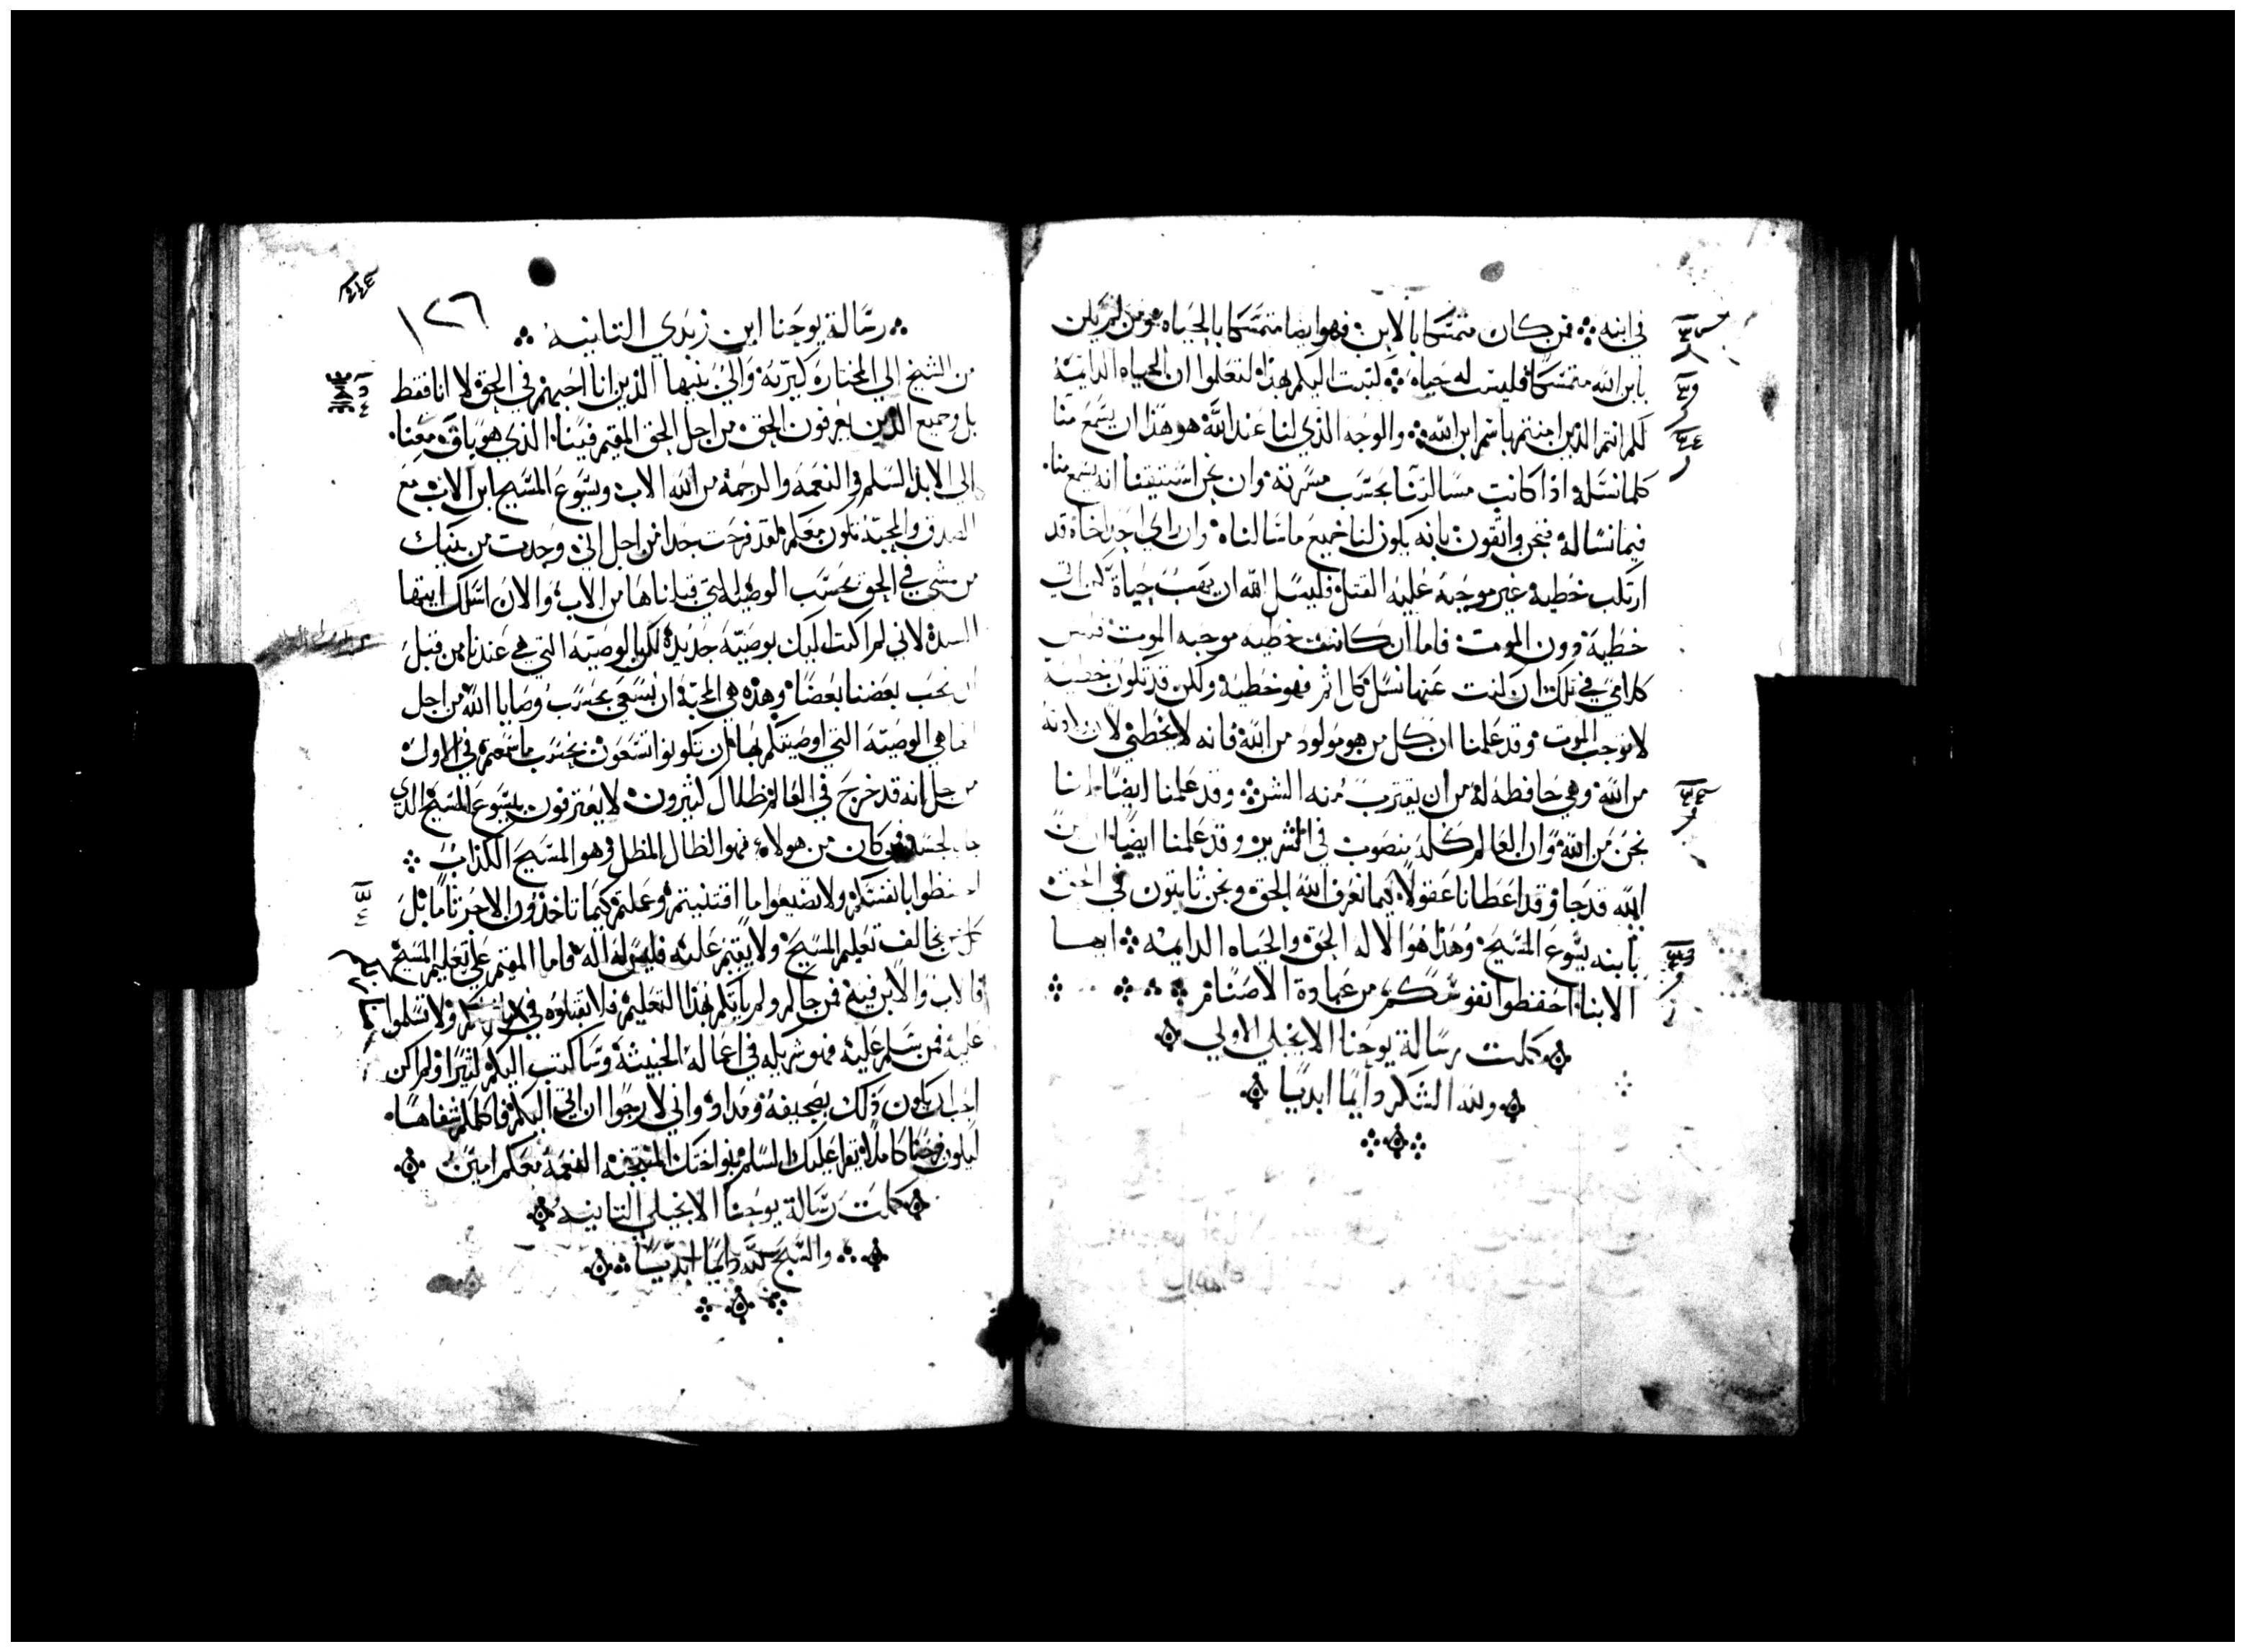 في ابنه فمن كان متمسكا بالابن فهو ايضا متمسكا بالحياه ومن لم يكن
بابن الله متمسكا فليست له حياه كتبت اليكم بهذا لتعلموا ان الحياه الدايمة
لكم انتم الذين امنتم باسم ابن الله والوجه الذي لنا عند الله هو هذا ان يسمع منا
كلما نسله اذا كانت مسالتنا بحسب مسرته وان نحن استيقنا انه يسمع منا
فيما نساله فنحن واثقون بانه يكون لنا جميع ما سالناه وان راي احد اخاه قد
ارتكب خطية غير موجبه عليه القتل فليسل الله ان يهب حياة
خطية دون الموت فاما ان كانت خطيه موجبه الموت فليس
كلامي في تلك ان كنت عنها نسل كل اثم فهو خطية ولكن قد تكون خطية
لا توجب الموت وقد علمنا ان كل من هو مولود من الله فانه لا يخطي لان ولادته
من الله وهي حافظة له من ان يقترب منه الشر وقد علمنا ايضا اننا
نحن من الله وان العالم كله منصوب في الشر وقد علمنا ايضا ان ابن
الله قد جا وقد اعطانا عقولا كيما نعرف الله الحق ونحن ثابتون في الحق
بابنه يسوع المسيح وهذا هو الاله الحق والحياه الدايمه ايها
الابنا احفظوا نفوسكم من عبادة الاصنام
كملت رسالة يوحنا الانجيلي الاولي
ولله الشكر دايما ابديا
١٢٦
رسالة يوحنا ابن زبدي التانيه
من الشيخ الي المختارة كيريه والي بنيها الذين انا احبهم في الحق لا انا فقط
بل وجميع الذين يعرفون الحق من اجل الحق المقيم فينا الذي هو باق معنا
الي الابد السلم والنعمه والرحمة من الله الاب ويسوع المسيح ابن الاب مع
الصدق والمحبة تكون معكم لقد فرحت جدا من اجل اني وجدت من بنيك
من مشي في الحق بحسب الوصية التي قبلناها من الاب والان اسلك ايتها
السيدة لاني لم اكتب اليك بوصية جديدة لكن الوصيه التي هي عندنا من قبل
ان نحب بعضنا بعضا وهذه هي المحبة ان نسعي بحسب وصايا الله من اجل
انها هي الوصيه التي اوصيتكم بها ان تكونوا تسعون بحسب ما سمعتم في الاول
من اجل انه قد خرج في العالم ظلال كثيرون لا يعترفون بيسوع المسيح الذي
جا بالجسد فمن كان من هولاء فهو الظال المظل وهو المسيح الكذاب
احفظوا بانفسكم ولا تضيعوا ما اقتنيتم وعلتم كيما تاخذون الاجر تاما بل
كل من يخالف تعليم المسيح ولا يقيم عليه فليس له اله فاما المقيم علي تعليم المسيح
فالاب والابن فيه فمن جاكم ولم ياتكم بهذا التعليم فلا تقبلوه في ولا تسلموا
عليه فمن سلم عليه فهو شريكه في اعماله الخبيثة وساكتب اليكم كثيرا ولم اكن
احب ان يكون ذلك بصحيفة ومداد واني لارجوا ان اتي اليكم فاكلمكم شفاها
ليكون فرحنا كاملا يقرا عليك السلم بنو اختك المنتخبه النعمة معكم امين
كملت رسالة يوحنا الانجيلي التانيه
والسبح لله دايما ابديا